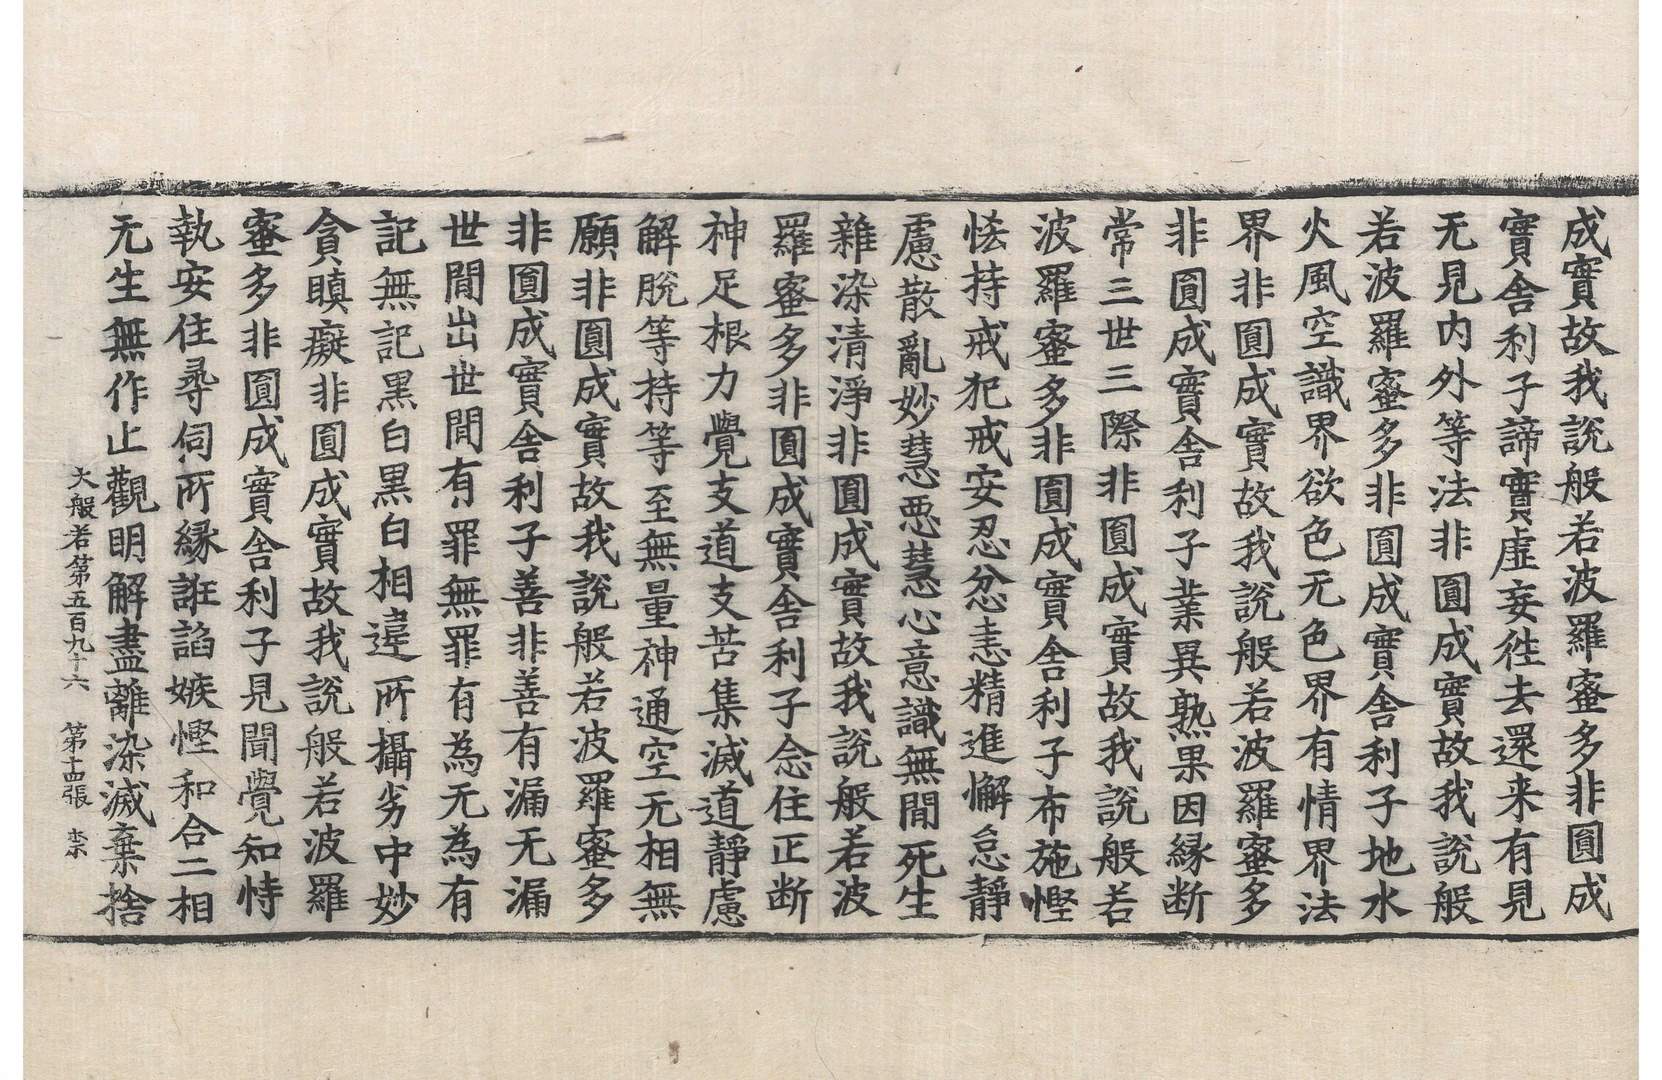 成實故我説般若波羅蜜多非圓成
實舎利子諦實虛妄往去還来有見
无見内外等法非圓成實故我説般
若波羅蜜多非圓成實舎利子地水
火風空識界欲色无色界有情界法
界非圓成實故我説般若波羅蜜多
非圓成實舎利子業異熟果因縁断
常三世三際非圓成實故我説般若
波羅蜜多非圓成實舎利子布施慳
悋持戒犯戒安忍忿恚精進懈怠靜
慮散亂妙慧惡慧心意識無間死生
雜染清淨非圓成實故我説般若波
羅蜜多非圓成實舎利子念住正断
神足根力覺支道支苦集滅道靜慮
解脱等持等至無量神通空无相無
願非圓成實故我説般若波羅蜜多
非圓成實舎利子善非善有漏无漏
世間出世間有罪無罪有為无為有
記無記黒白黒白相違所攝劣中妙
貪瞋癡非圓成實故我説般若波羅
蜜多非圓成實舎利子見聞覺知恃
執安住尋伺所縁誑諂嫉慳和合二相
无生無作止觀明解盡離染滅棄捨
大般若第五百九十六 第十四張